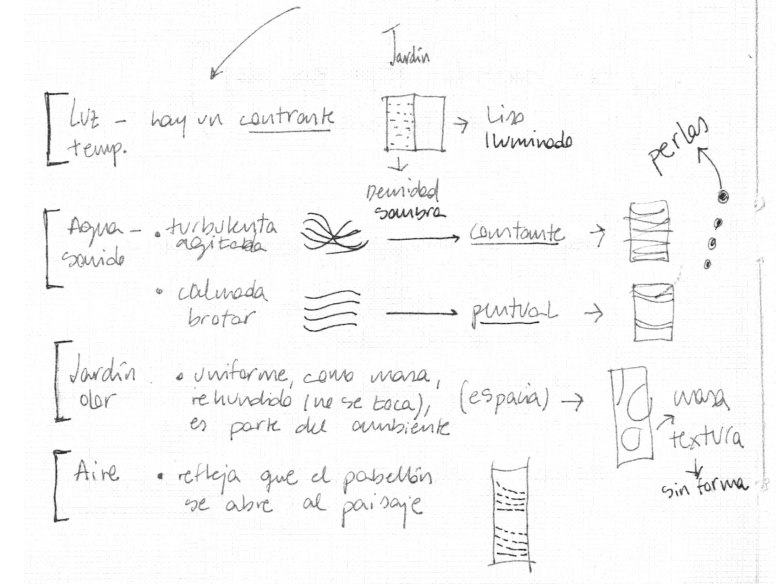 Jardín
Luz - hay un contraste
temp.
→ Liso
Iluminado
Densidad
sombra
perlas
Agua - • turbulenta
sonido
agitada
→ constante →
• calmada
brotar
→ puntual →
Jardín • uniforme, como masa,
olor
rehundido (no se toca),
es parte del ambiente
(espacio) →
masa
textura
sin forma
Aire • refleja que el pabellón
se abre al paisaje